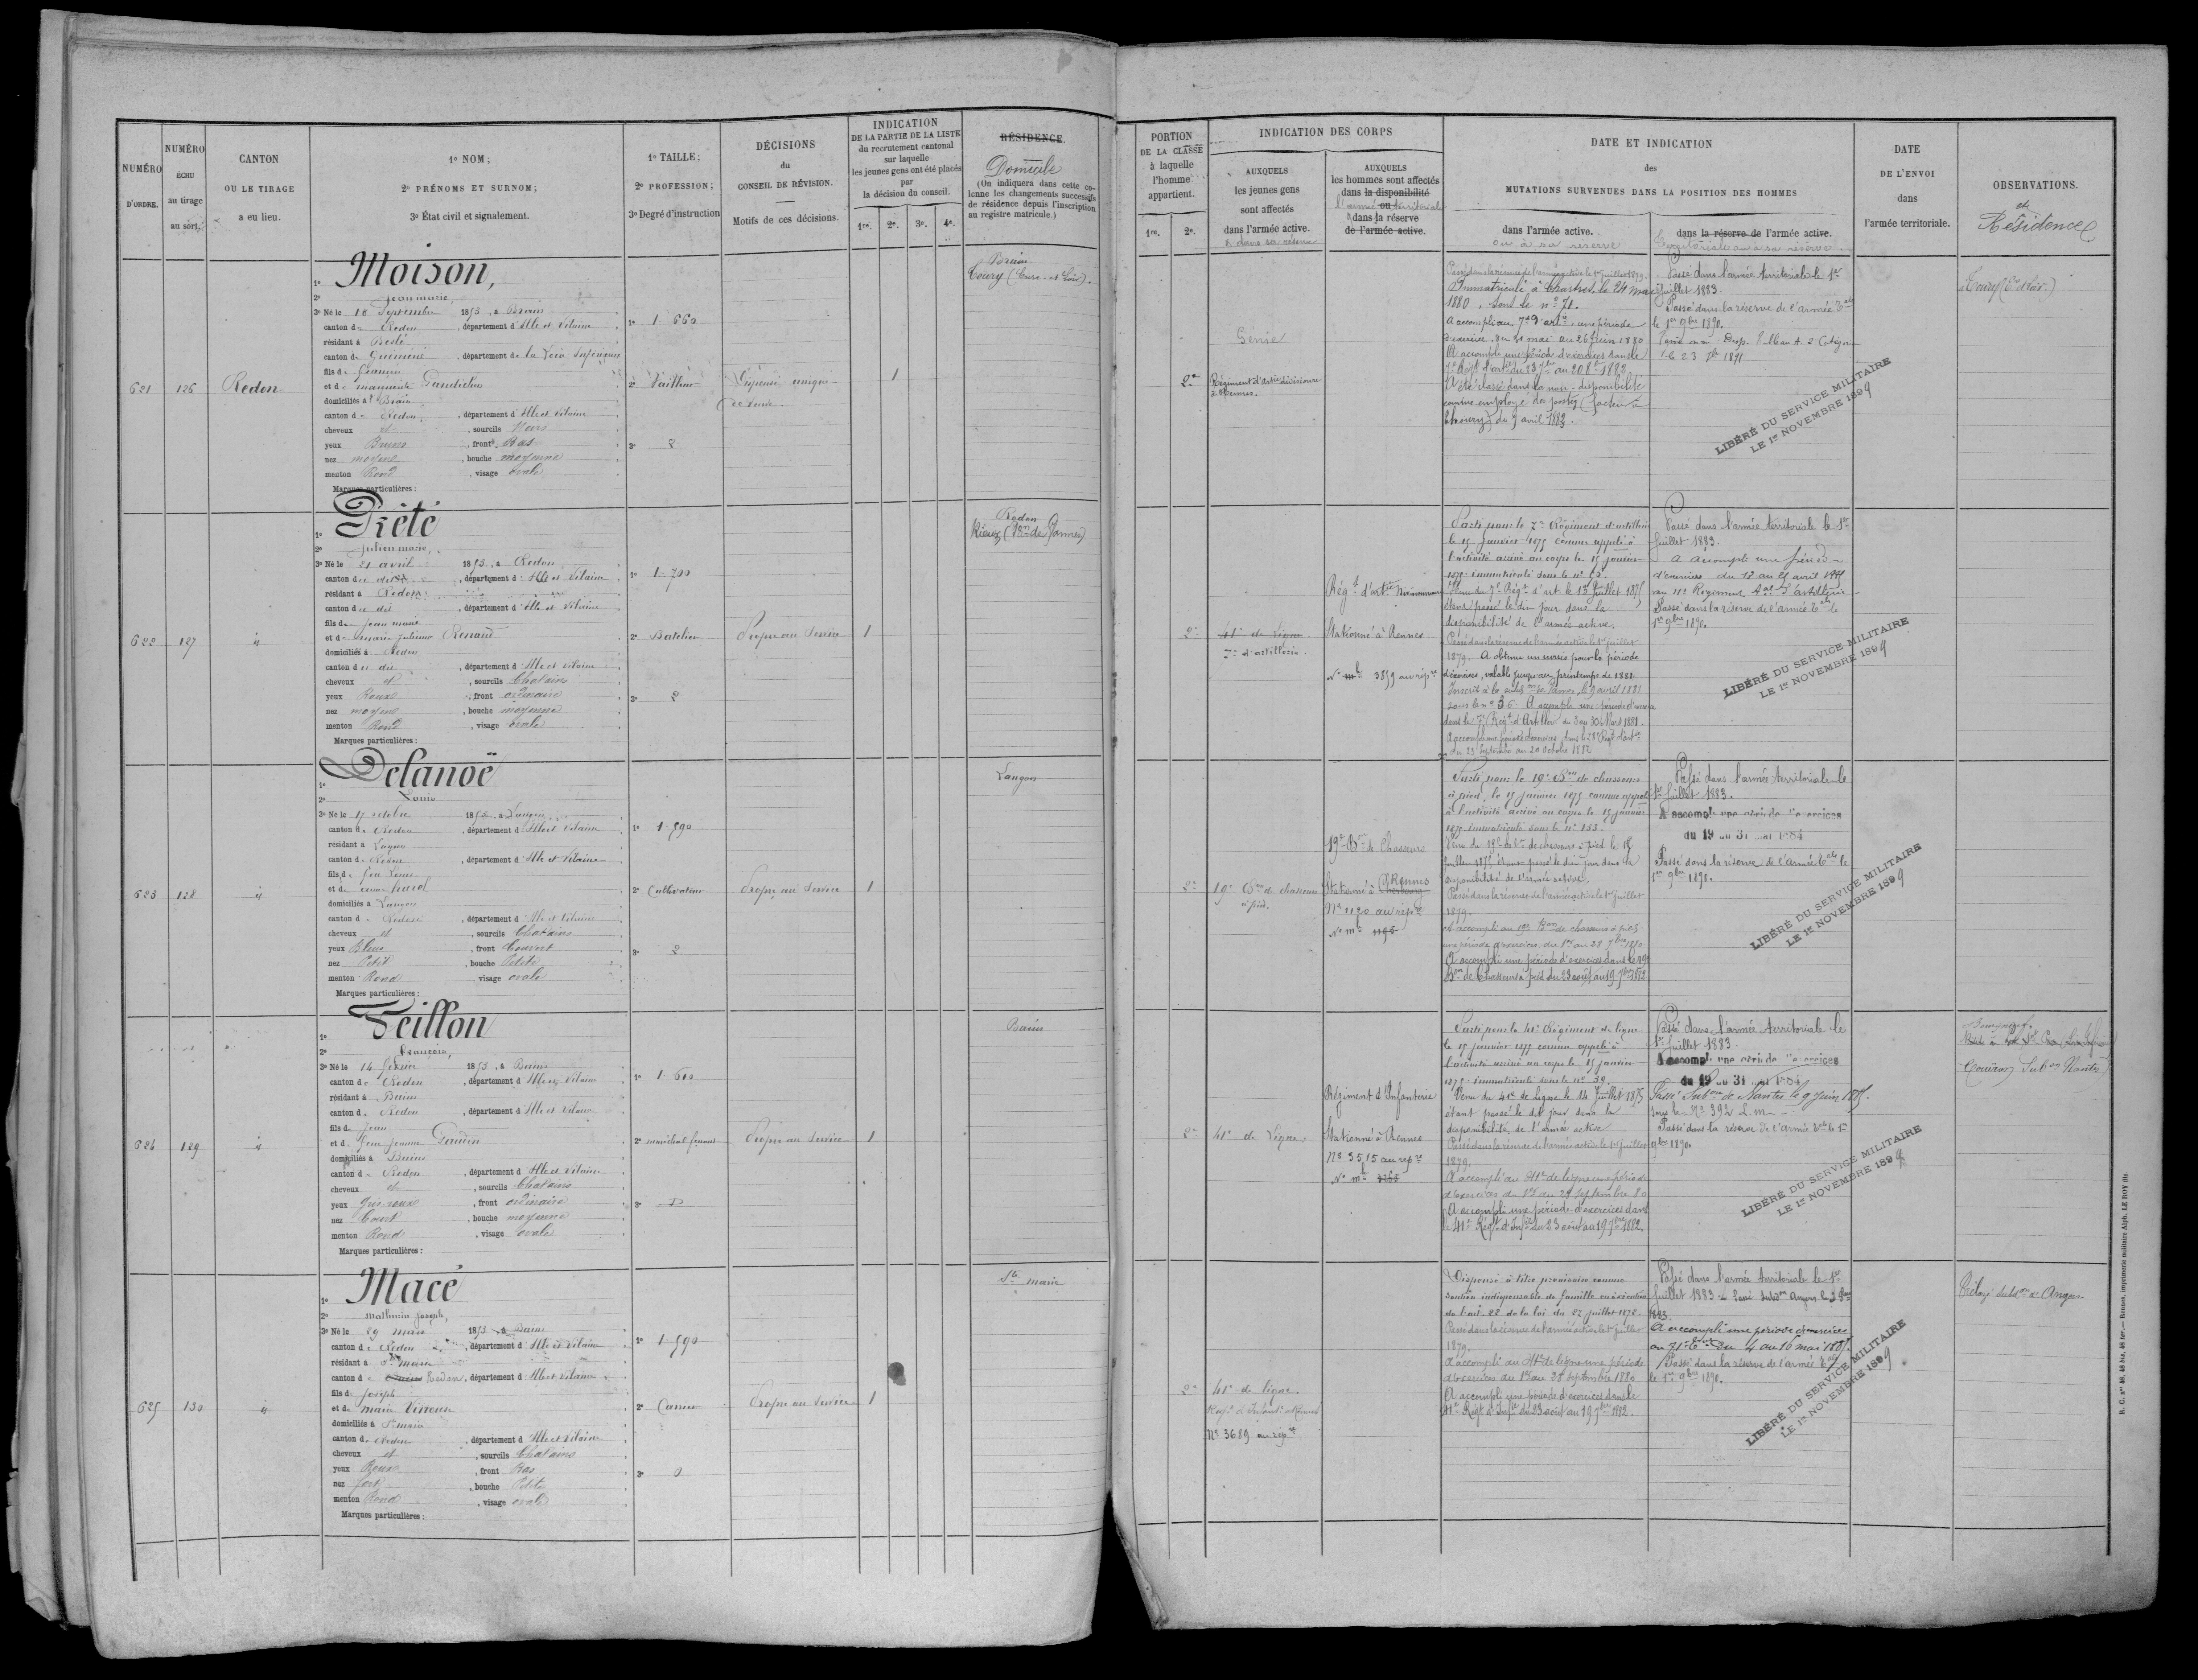 NUMÉRO D'ORDRE.
NUMÉRO ÉCHU au tirage au sort.
CANTON OU LE TIRAGE a eu lieu.
1º NOM;
2º PRÉNOMS ET SURNOM;
3º État civil et signalement.
1º TAILLE;
2º PROFESSION;
3º Degré d'instruction
DÉCISIONS du CONSEIL DE RÉVISION.
Motifs de ces décisions.
INDICATION DE LA PARTIE DE LA LISTE du recrutement cantonal sur laquelle les jeunes gens ont été placés par la décision du conseil.
1re. 2e. 3e. 4e.
RÉSIDENCE.
Domicile
(On indiquera dans cette colonne les changements successifs de résidence depuis l'inscription au registre matricule.)
PORTION DE LA CLASSE à laquelle l'homme appartient.
1re. 2e.
INDICATION DES CORPS
AUXQUELS les jeunes gens sont affectés dans l'armée active.
& dans sa réserve
AUXQUELS les hommes sont affectés dans la disponibilité ou dans la réserve de l'armée active.
l'armée territoriale
DATE ET INDICATION des MUTATIONS SURVENUES DANS LA POSITION DES HOMMES
dans l'armée active.
ou à sa réserve
dans la réserve de l'armée active.
territoriale ou à sa réserve.
DATE DE L'ENVOI dans l'armée territoriale.
OBSERVATIONS.
et Résidences
621
126
Redon
1º Moison,
2º Jean marie,
3º Né le 10 Septembre 1853, à Brain
canton de Redon, département d'Ille et Vilaine
résidant à
canton de Guéméné, département de la Loire Inférieure
fils de
et de marguerite
domiciliés à Brain
canton de Redon, département d'Ille et Vilaine
cheveux et, sourcils Noirs
yeux Bruns, front Bas
nez moyen, bouche moyenne
menton Rond, visage ovale
Marques particulières :
1º 1-660
2º Tailleur
3º 2
Dispensé unique de veuve
1
Brain
Toury (Eure-et-Loir).
2e
Génie
Régiment d'artie divisionnaire à Rennes.
Passé dans la réserve de l'armée active le 1er juillet 1879.
Immatriculé à Chartres le 24 mai
1880, sous le nº 71.
A accompli au 7e d'artie, une période
d'exercice du 31 mai au 26 juin 1880
A accompli une période d'exercices dans le
7e Régt d'artie du 23 7bre au 20 8bre 1882.
A été classé dans la non-disponibilité
comme employé des postes (facteur à
Thoury) du 9 avril 1883.
Passé dans l'armée territoriale le 1er
juillet 1883.
Passé dans la réserve de l'armée Tale
le 1er 9bre 1890.
le 23 7bre 1891
LIBÉRÉ DU SERVICE MILITAIRE
LE 1er NOVEMBRE 1899
Toury (Eure et Loir.)
622
127
id
1º Prêté
2º Julien marie,
3º Né le 21 avril 1853, à Redon
canton de dit, département d'Ille et Vilaine
résidant à Redon
canton de dit, département d'Ille et Vilaine
fils de Jean marie
et de marie Julienne Renaud
domiciliés à Redon
canton de dit, département d'Ille et Vilaine
cheveux et, sourcils Chatains
yeux Roux, front ordinaire
nez moyen, bouche moyenne
menton Rond, visage ovale
Marques particulières :
1º 1-700
2º Batelier
3º 2
Propre au Service
1
Redon
Rieux (Son de Vannes)
2e
41e de Ligne
7e d'artillerie.
Régt d'artie
Stationné à Rennes
Nº 3859 au répre
Parti pour le 7e Régiment d'artillerie
le 15 Janvier 1875 comme appelé à
l'activité arrivé au corps le 15 janvier
1875 immatriculé sous le nº
Venu du 7e Régt d'art. le 15 Juillet 1875
étant passé le dit jour dans la
disponibilité de l'armée active.
Passé dans la réserve de l'armée active le 1er juillet
1879. A obtenu un sursis pour la période
d'exercices, valable jusqu'au printemps de 1881
Inscrit à la subdon de Vannes, le 9 avril 1881
sous le nº 36 A accompli une période d'exercices
dans le 7e Régt d'Artillerie du 3 au 30 Mars 1881.
A accompli une période d'exercices dans le 28e Régt d'artie
du 23 Septembre au 20 Octobre 1882
Passé dans l'armée territoriale le 1er
Juillet 1883.
A accompli une période
d'exercices du 13 au 25 avril 1885
au 11e Régiment Tal d'artillerie
Passé dans la réserve de l'armée Tale le
1er 9bre 1890.
LIBÉRÉ DU SERVICE MILITAIRE
LE 1er NOVEMBRE 1899
623
128
id
1º Delanoë
2º Louis
3º Né le 17 octobre 1853, à Langon
canton de Redon, département d'Ille et Vilaine
résidant à Langon
canton de Redon, département d'Ille et Vilaine
fils de feu Louis
et de
domiciliés à Langon
canton de Redon, département d'Ille et Vilaine
cheveux et, sourcils Chatains
yeux Bleus, front Couvert
nez Petit, bouche Petite
menton Rond, visage ovale
Marques particulières :
1º 1-590
2º Cultivateur
3º 2
Propre au Service
1
Langon
2e
19e Bon de chasseurs à pied.
19e Bon de Chasseurs
Stationné à Rennes
Nº 1190 au répre
Parti pour le 19e Bon de chasseurs
à pied, le 15 janvier 1875 comme appelé
à l'activité arrivé au corps le 15 janvier
1875 immatriculé sous le nº 153
Venu du 19e Bon de chasseurs à pied le 15
Juillet 1875 étant passé le dit jour dans la
disponibilité de l'armée active.
Passé dans la réserve de l'armée active le 1er juillet
1879.
A accompli au 19e Bon de chasseurs à pied
une période d'exercices du 1er au 28 7bre 1880
A accompli une période d'exercices dans le 19e
Bon de Chasseurs à pied du 23 août au 19 7bre 1882
Passé dans l'armée territoriale le
1er Juillet 1883.
A accompli une période d'exercices
du 19 au 31 mai 1884
Passé dans la réserve de l'armée Tale le
1er 9bre 1890.
LIBÉRÉ DU SERVICE MILITAIRE
LE 1er NOVEMBRE 1899
624
129
id
1º Feillon
2º François,
3º Né le 14 février 1853, à Bains
canton de Redon, département d'Ille et Vilaine
résidant à Bains
canton de Redon, département d'Ille et Vilaine
fils de Jean
et de feue Jeanne Gaudin
domiciliés à Bains
canton de Redon, département d'Ille et Vilaine
cheveux et, sourcils Chatains
yeux Gris roux, front ordinaire
nez Court, bouche moyenne
menton Rond, visage ovale
Marques particulières :
1º 1-610
2º maréchal ferrant
3º
Propre au Service
1
Bains
2e
41e de Ligne,
Régiment d'Infanterie
Stationné à Rennes
Nº 3515 au répre
Parti pour le 41e Régiment de ligne
le 15 janvier 1875 comme appelé à
l'activité arrivé au corps le 15 janvier
1875 immatriculé sous le nº 39.
Venu du 41e de Ligne le 14 Juillet 1875
étant passé le dit jour dans la
disponibilité de l'armée active
Passé dans la réserve de l'armée active le 1er juillet
1879.
A accompli au 41e de ligne une période
d'exercices du 1er au 28 Septembre 80
A accompli une période d'exercices dans
le 41e Régt d'Infie du 23 août au 19 7bre 1882.
Passé dans l'armée territoriale le
1er Juillet 1883.
A accompli une période d'exercices
du 19 au 31 mai 1884
Passé Subdon de Nantes le 9 Juin 1885.
sous le Nº 392 L.m
Passé dans la réserve de l'armée Tale le 1er
9bre 1890.
LIBÉRÉ DU SERVICE MILITAIRE
LE 1er NOVEMBRE 189
Couëron Subon Nantes
625
130
id
1º Macé
2º mathurin Joseph,
3º Né le 29 mars 1853, à Bains
canton de Redon, département d'Ille et Vilaine
résidant à Ste Marie
canton de Redon, département d'Ille et Vilaine
fils de Joseph
et de maria
domiciliés à Ste marie
canton de Redon, département d'Ille et Vilaine
cheveux et, sourcils Chatains
yeux Roux, front Bas
nez fort, bouche Petite
menton Rond, visage ovale
Marques particulières :
1º 1-590
2º
3º 0
Propre au Service
1
Ste marie
2e
41e de ligne.
Régt d'Infanie à Rennes
Nº 3689 au répre
Dispensé à titre provisoire comme
soutien indispensable de famille en exécution
de l'art. 22 de la loi du 27 juillet 1872.
Passé dans la réserve de l'armée active le 1er juillet
1879.
A accompli au 41e de ligne une période
d'exercices du 1er au 28 septembre 1880
A accompli une période d'exercices dans le
41e Régt d'Infie du 23 août au 19 7bre 1882.
Passé dans l'armée territoriale le 1er
Juillet 1883. Passé Subdon Angers le
1883.
A accompli une période d'exercices
au 71e Tal du 4 au 16 mai 1885.
Passé dans la réserve de l'armée Tale
le 1er 9bre 1890.
LIBÉRÉ DU SERVICE MILITAIRE
LE 1er NOVEMBRE 1899
Subdon d'Angers
R. C. nos 48, 48 bis, 48 ter. — Rennes, imprimerie militaire Alph. LE ROY fils